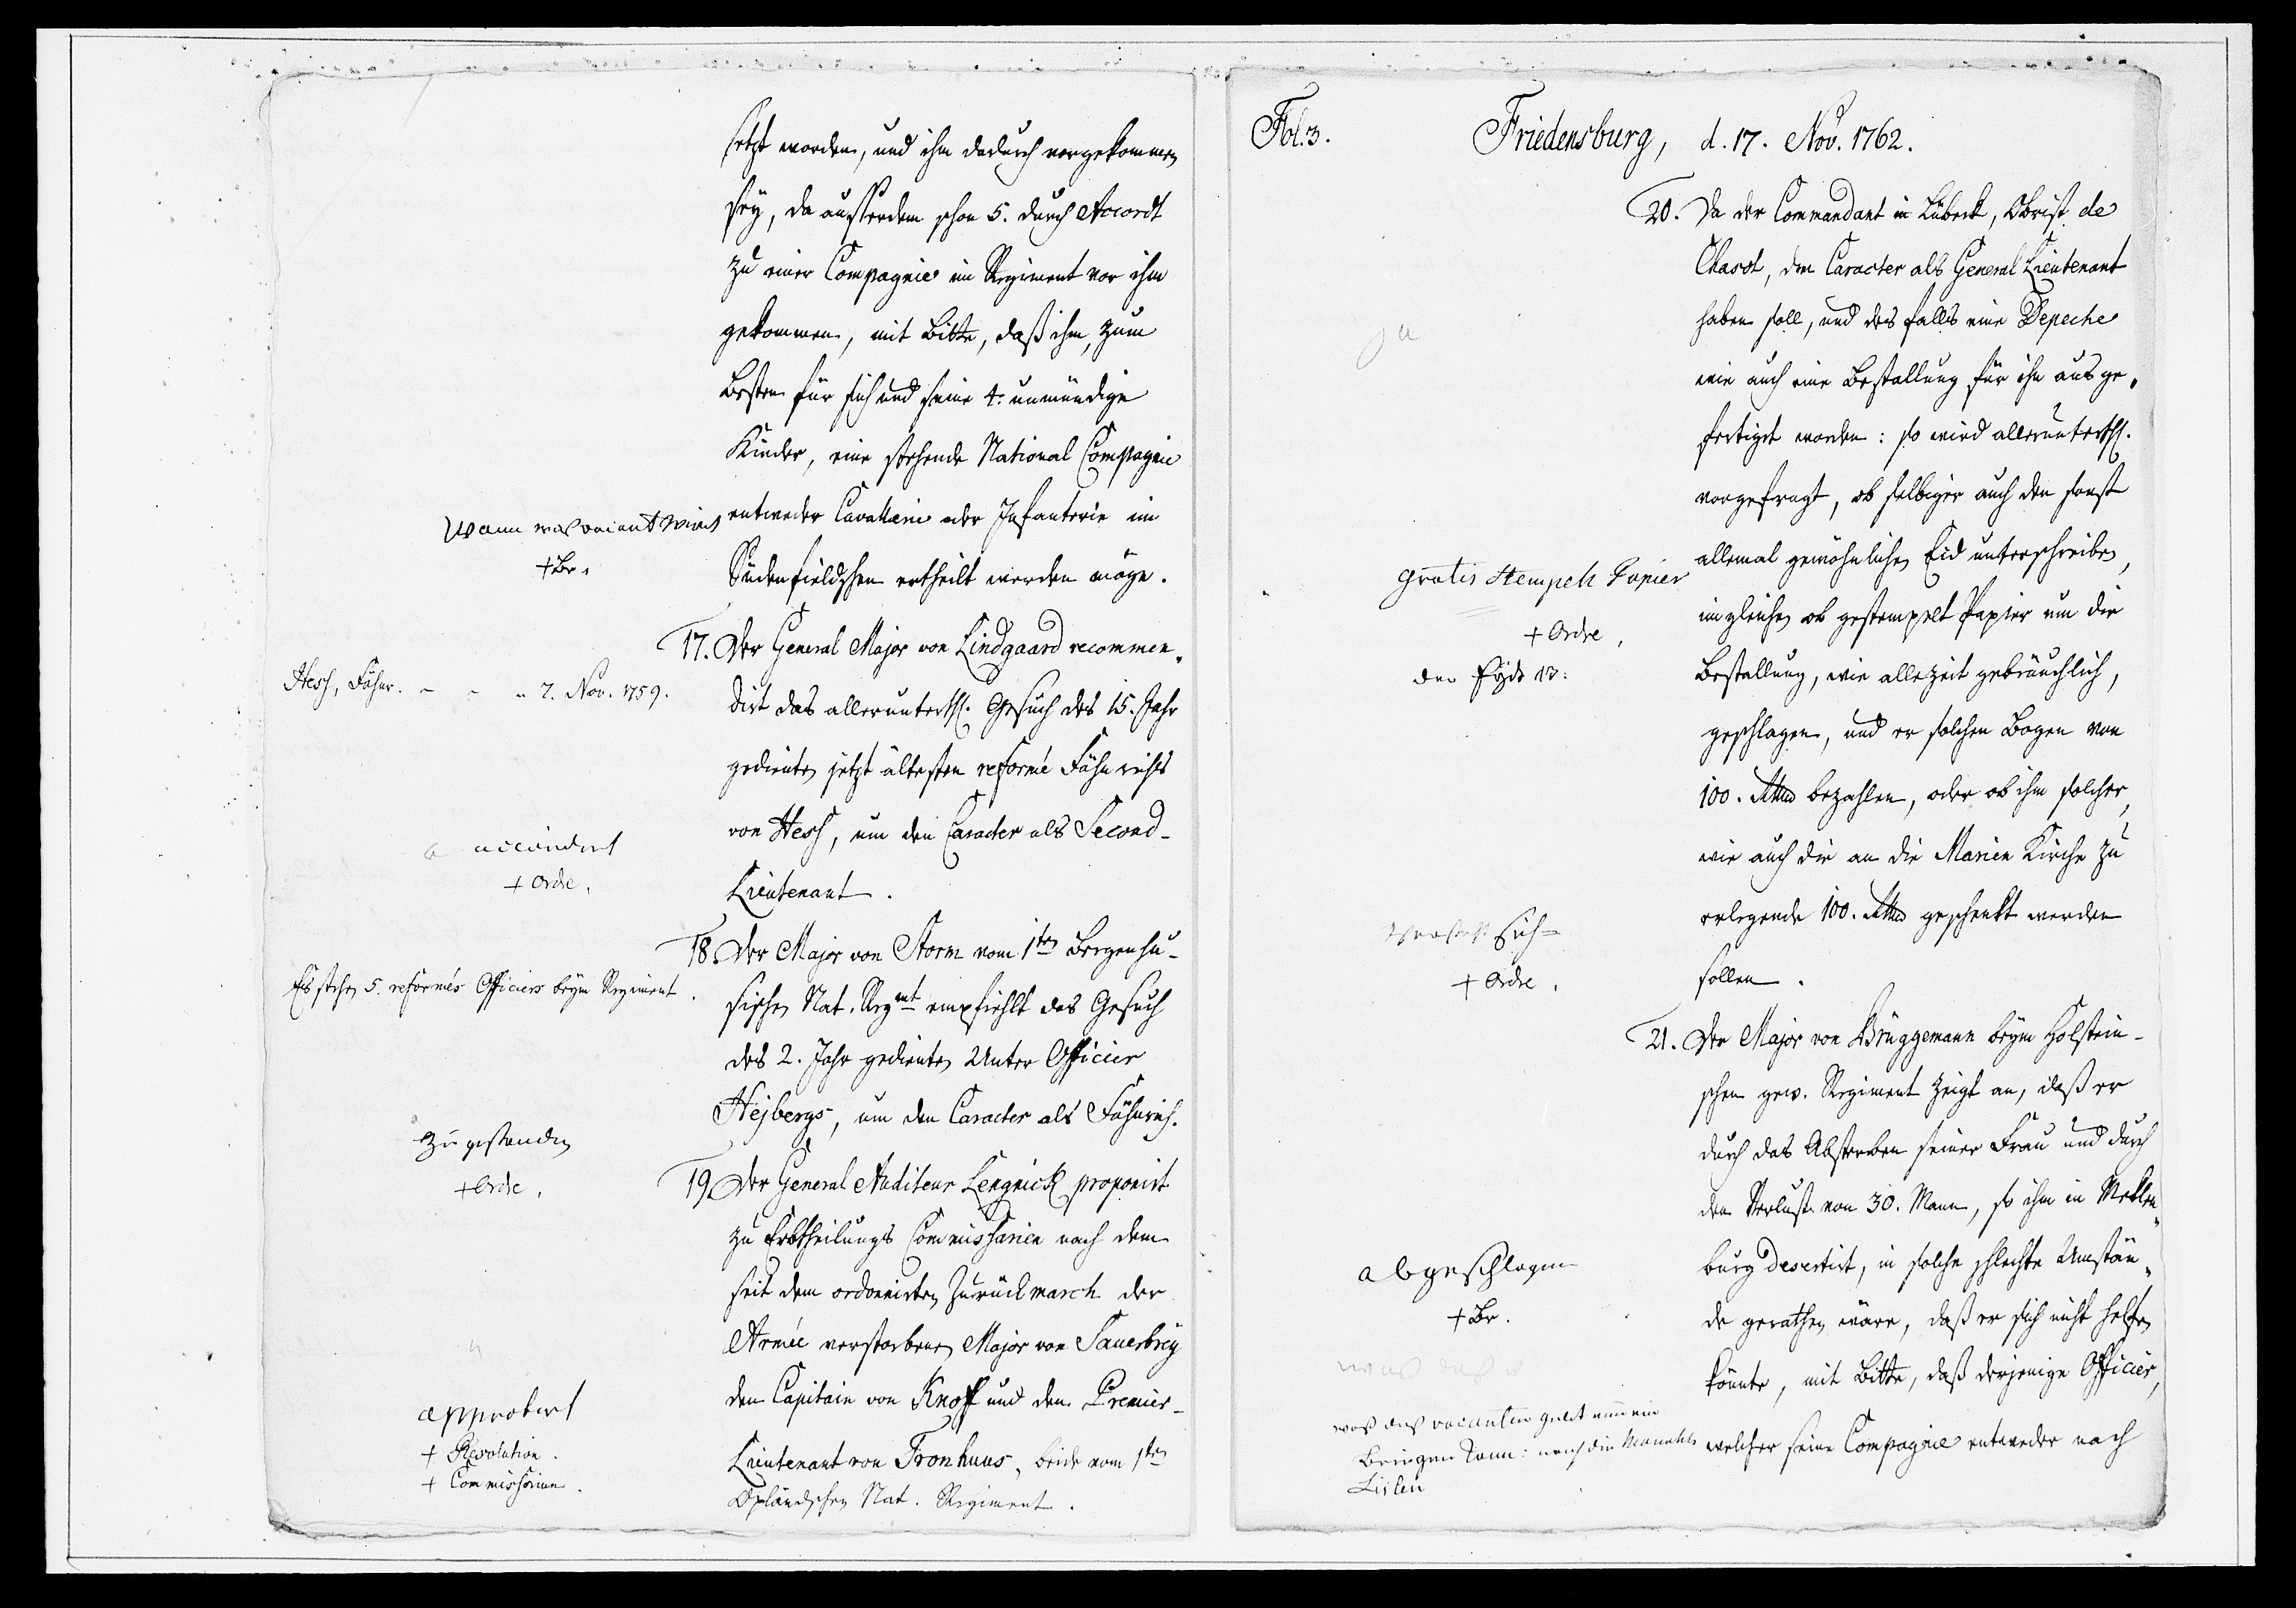 setzt worden, und ihm dadurch vorgekommen
sey, da ausserdem schon 5. durch Accordt
zu einer Compagnie im Regiment vor ihm
gekommen, mit Bitte, daß ihm, zum
Besten für sich und seine 4. unmündige
Kinder, eine stehende National Compagnie
entweder Cavallerie oder Infanterie im
Südenfieldschen ertheilt werden möge.
Wann was vacant wird
+ Br.
17. Der General Major von Lindgaard recommen„
dirt das allerunterth. Gesuch des 15. Jahr
gedienten jetzt ältesten reformé Fähnrichs
von Hess, um den Caracter als Second-
Lieutenant.
Hess, Fähnr. - - - 7. Nov. 1759.
accordirt
+ Ordre.
18. Der Major von Storm vom 1ten Bergenhu-
sischen Nat. Regmt empfiehlt das Gesuch
des 2. Jahr gedienten Unter Officier
Hejbergs, um den Caracter als Fähnrich.
Es stehen 5. reformés Officiers beym Regiment.
zugestanden
+ Ordre.
19. Der General Auditeur Lengnick proponirt
zu Erbtheilungs Commissarien nach dem
seit dem ordonnirten Zurückmarch der
Armée verstorbenen Major von Sauerbrey
den Capitain von Knoff und den Premier-
Lieutenant von Fronhuus, beide vom 1ten
Opländschen Nat. Regiment.
approbirt
+ Resolution.
+ Commissorium.
Fol. 3. Friedensburg, d. 17. Nov. 1762.
20. Da der Commandant in Lübeck, Obrist de
Chasot, den Caracter als General Lieutenant
haben soll, und desfalls eine Depeche
wie auch eine Bestallung für ihn ausge„
fertigt worden: so wird allerunterth.
vorgefragt, ob selbiger auch den sonst
allemal gewöhnlichen Eid unterschreiben,
imgleichen ob gestempelt Papier um die
Bestallung, wie allezeit gebräuchlich,
geschlagen, und er solchen Bogen von
100. Rthlr bezahlen, oder ob ihm solcher,
wie auch die an die Marien Kirche zu
erlegende 100. Rthlr geschenkt werden
sollen.
ja
gratis Stempelt Papier
+ Ordre.
den Eydt
versteht sich
+ Ordre.
21. Der Major von Brüggemann beym Holstein-
schen gew. Regiment zeigt an, daß er
durch das Absterben seiner Frau und durch
den Verlust von 30. Mann, so ihm in Meklen„
burg desertirt, in solche schlechte Umstän„
de gerathen wäre, daß er sich nicht helfen
könnte, mit Bitte, daß derjenige Officier,
welcher seine Compagnie entweder nach
abgeschlagen
+ Br.
was das
was das vacanten geldt
Bringen kann: nach die
Listen